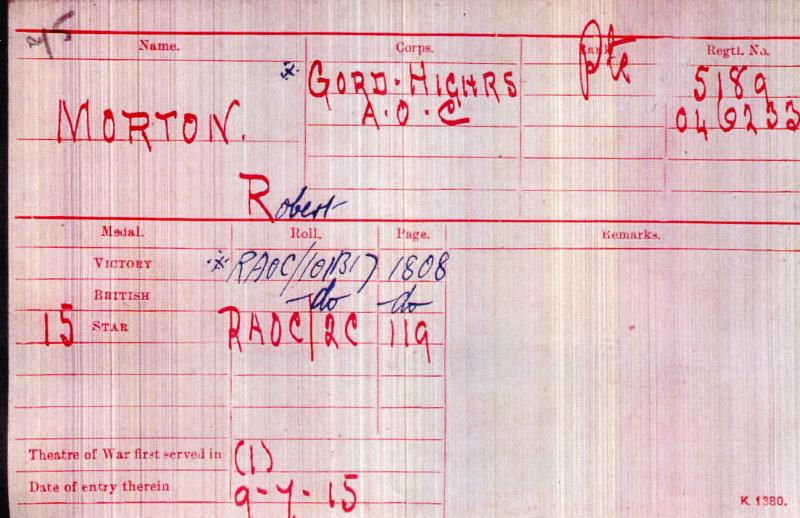 Name. Corps. Rank. Regtl. No.
* GORD. HIGHRS Pte 5189
A.O.C 046233
MORTON.
Robert
Medal. Roll. Page. Remarks.
VICTORY * RAOC/101B17 1808
BRITISH do do
15 STAR RAOC/2C 119
Theatre of War first served in (1)
Date of entry therein 9-7-15
K. 1380.